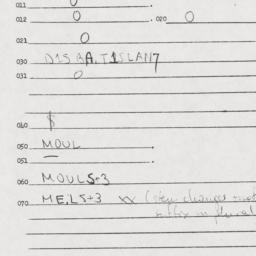 011 0
012 0 . 020 0
021 0
030
031 0
040 $
050 MOUL
051 —
060 MOULS+3
070 MEILS+3 xx (stem changes
in plural